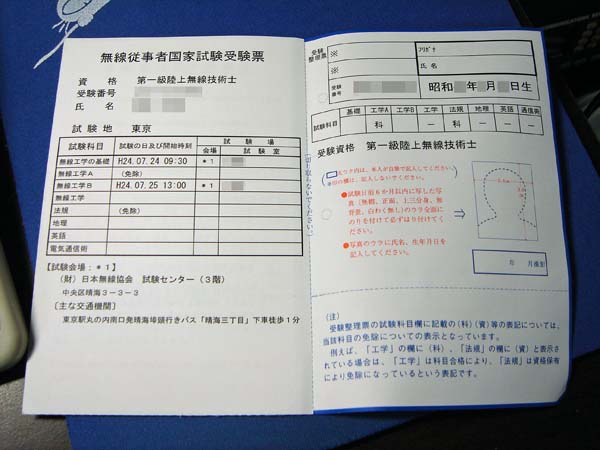 無線従事者国家試験受験票
資格 第一級陸上無線技術士
受験番号
氏名
試験地 東京
試験科目 試験の日及び開始時刻 試験場
会場 試験室
無線工学の基礎 H24.07.24 09:30 *1
無線工学A (免除)
無線工学B H24.07.25 13:00 *1
無線工学
法規 (免除)
地理
英語
電気通信術
【試験会場:*1】
(財)日本無線協会 試験センター(3階)
中央区晴海3-3-3
〔主な交通機関〕
東京駅丸の内南口発晴海埠頭行きバス「晴海三丁目」下車徒歩1分
受験整理票 ※ フリガナ
※ 氏名
受験番号 昭和 年 月 日生
試験科目 基礎 工学A 工学B 工学 法規 地理 英語 通信術
科 ー 科 ー
受験資格 第一級陸上無線技術士
太ワク内は、本人が自筆で記入してください。
※印の欄は、記入しないでください。
●試験日前6か月以内に写した写
真(無帽、正面、上三分身、無
背景、白わく無し)のウラ全面に
のりを付けて必ずはり付けてく
ださい。
●写真のウラに氏名、生年月日を
記入してください。
年 月撮影
(注)
受験整理票の試験科目欄に記載の(科)(資)等の表記については、
当該科目の免除についての表示となっています。
例えば、「工学」の欄に(科)、「法規」の欄に(資)と表示さ
れている場合は、「工学」は科目合格により、「法規」は資格保有
により免除になっているという表記です。